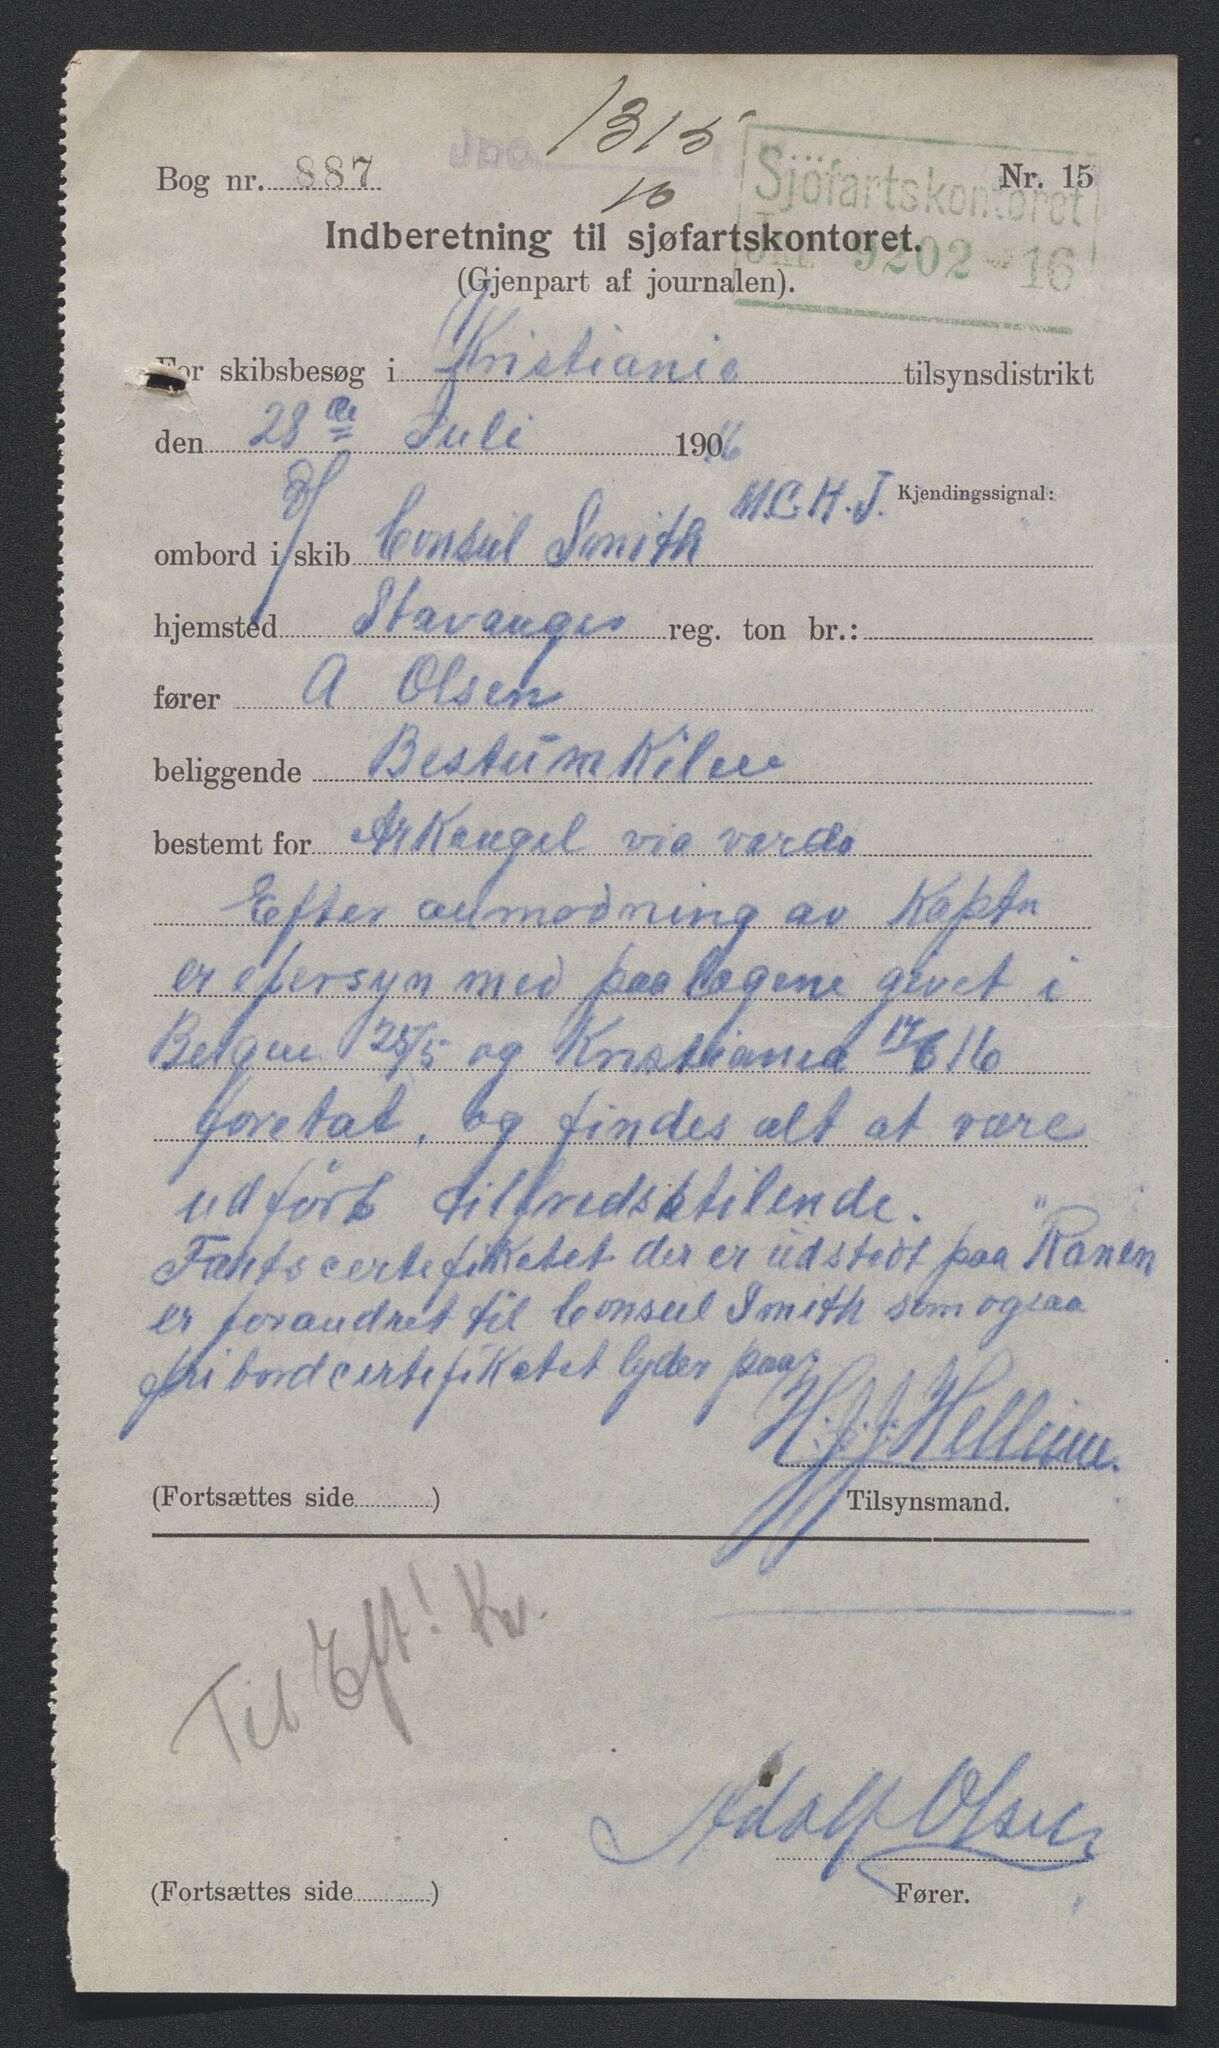 1315
16
Bog nr. 887
Nr. 15
Sjöfartskontoret
Jnr. 9202-16
Indberetning til sjøfartskontoret.
(Gjenpart af journalen).
For skibsbesøg i Kristiania tilsynsdistrikt
den 28de Juli 1916
M.C.H.J. Kjendingssignal:
ombord i D/ skib Consul Smith
hjemsted Stavanger reg. ton br.:
fører A Olsen
beliggende Bestumkilen
bestemt for Arkangel via vardø
Efter anmodning av Kaptn
er efersyn med paalagene givet i
Bergen 25/5 og Kristiania 17/6 16
foretat, og findes alt at være
udført tilfredsstilende.
Farts certefikatet der er udstedt paa "Ranen
er forandret til Consul Smith som ogsaa
fribordcertefikatet lyder paa.
H. J. J. Hellum.
(Fortsættes side )
Tilsynsmand.
Til Eft! Kv.
Adolf Olsen
(Fortsættes side )
Fører.